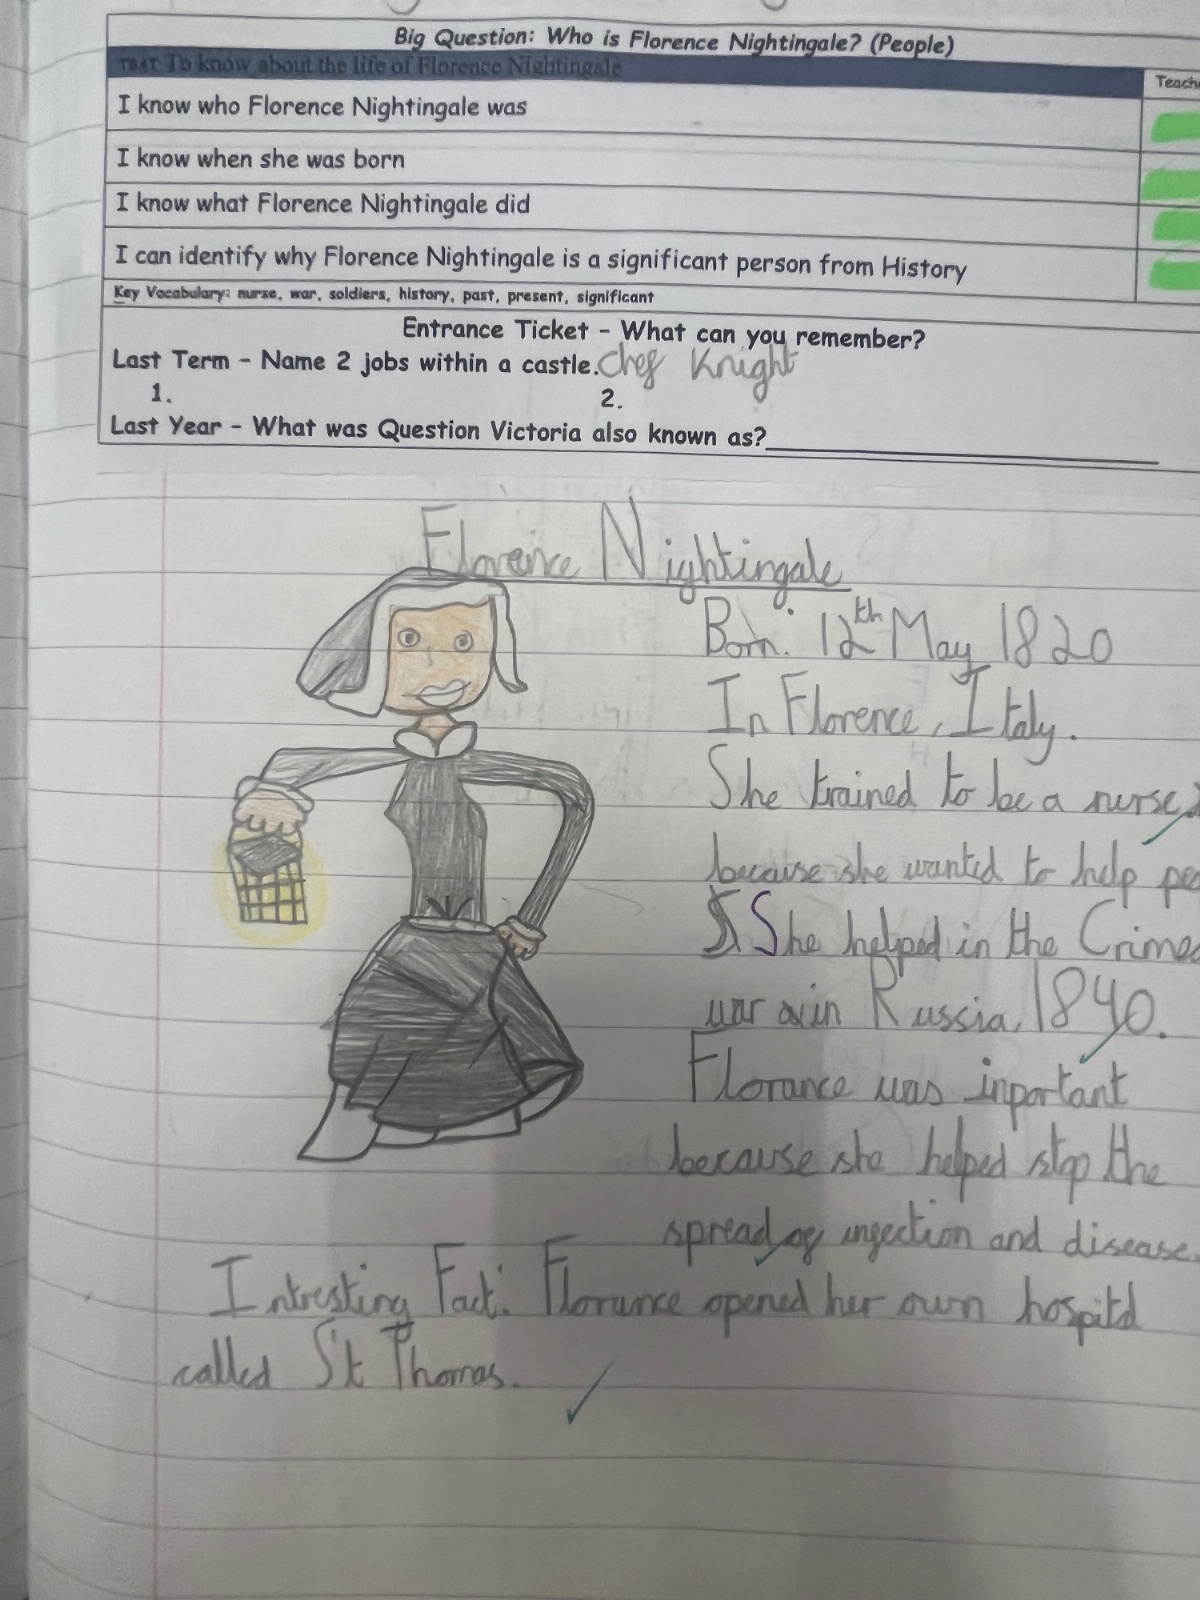 Big Question: Who is Florence Nightingale? (People)
TBAT: To know about the life of Florence Nightingale
I know who Florence Nightingale was
I know when she was born
I know what Florence Nightingale did
I can identify why Florence Nightingale is a significant person from History
Key Vocabulary: nurse, war, soldiers, history, past, present, significant
Entrance Ticket - What can you remember?
Last Term - Name 2 jobs within a castle. Chef Knight
1. 2.
Last Year - What was Question Victoria also known as?
Florence Nightingale
Born: 12th May 1820
In Florence, Italy.
She trained to be a nurse
because she wanted to help
She helped in the
war in Russia, 1840.
Florance was inportant
because she helped stop the
spread of ingection and disease.
Intresting Fact: Florance opened her own hospitd
called St Thomas.